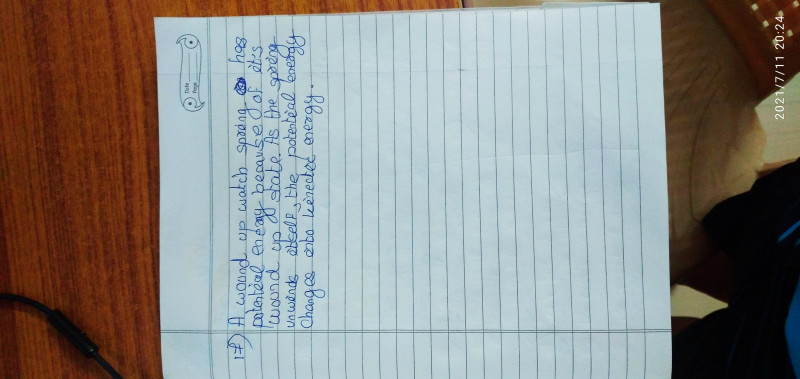 Date
Page
17) A wound up watch spring has
potential energy because of it's
wound up state. As the spring
unwinds itself, the potential energy
changes into kinectic energy.
2021/7/11 20:24